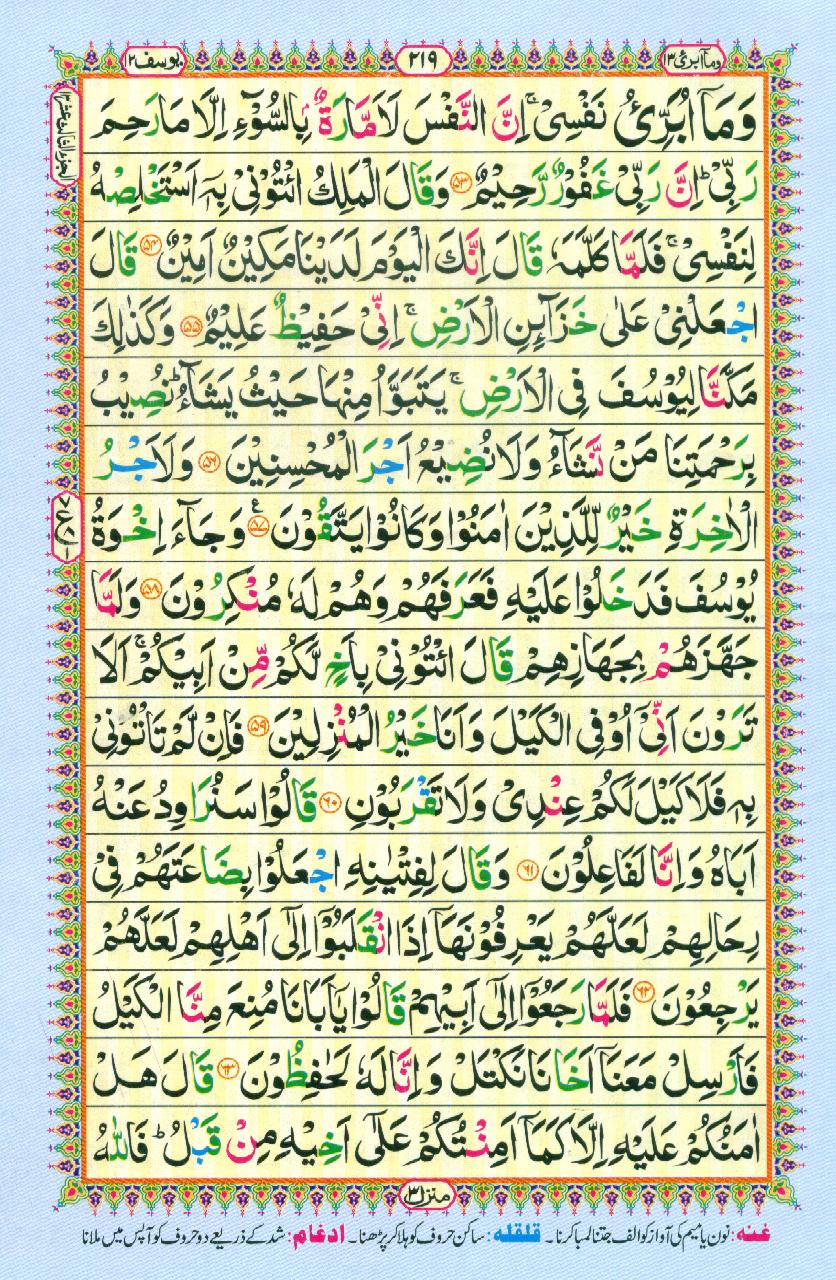 وما ابرئ ١٣
٢١٩
يوسف ١٢
وَمَآ اُبَرِّئُ نَفْسِیْ ۚ اِنَّ النَّفْسَ لَاَمَّارَةٌۢ بِالسُّوْٓءِ اِلَّا مَا رَحِمَ
رَبِّیْ ؕ اِنَّ رَبِّیْ غَفُوْرٌ رَّحِیْمٌ ﴿۵۳﴾ وَقَالَ الْمَلِكُ ائْتُوْنِیْ بِهٖۤ اَسْتَخْلِصْهُ
لِنَفْسِیْ ۚ فَلَمَّا كَلَّمَهٗ قَالَ اِنَّكَ الْیَوْمَ لَدَیْنَا مَكِیْنٌ اَمِیْنٌ ﴿۵۴﴾ قَالَ
اجْعَلْنِیْ عَلٰی خَزَآىِٕنِ الْاَرْضِ ۚ اِنِّیْ حَفِیْظٌ عَلِیْمٌ ﴿۵۵﴾ وَكَذٰلِكَ
مَكَّنَّا لِیُوْسُفَ فِی الْاَرْضِ ۚ یَتَبَوَّاُ مِنْهَا حَیْثُ یَشَآءُ ؕ نُصِیْبُ
بِرَحْمَتِنَا مَنْ نَّشَآءُ وَلَا نُضِیْعُ اَجْرَ الْمُحْسِنِیْنَ ﴿۵۶﴾ وَلَاَجْرُ
الْاٰخِرَةِ خَیْرٌ لِّلَّذِیْنَ اٰمَنُوْا وَكَانُوْا یَتَّقُوْنَ ﴿۵۷﴾ ع وَجَآءَ اِخْوَةُ
یُوْسُفَ فَدَخَلُوْا عَلَیْهِ فَعَرَفَهُمْ وَهُمْ لَهٗ مُنْكِرُوْنَ ﴿۵۸﴾ وَلَمَّا
جَهَّزَهُمْ بِجَهَازِهِمْ قَالَ ائْتُوْنِیْ بِاَخٍ لَّكُمْ مِّنْ اَبِیْكُمْ ۚ اَلَا
تَرَوْنَ اَنِّیْۤ اُوْفِی الْكَیْلَ وَاَنَا خَیْرُ الْمُنْزِلِیْنَ ﴿۵۹﴾ فَاِنْ لَّمْ تَاْتُوْنِیْ
بِهٖ فَلَا كَیْلَ لَكُمْ عِنْدِیْ وَلَا تَقْرَبُوْنِ ﴿۶۰﴾ قَالُوْا سَنُرَاوِدُ عَنْهُ
اَبَاهُ وَاِنَّا لَفَاعِلُوْنَ ﴿۶۱﴾ وَقَالَ لِفِتْیٰنِهِ اجْعَلُوْا بِضَاعَتَهُمْ فِیْ
رِحَالِهِمْ لَعَلَّهُمْ یَعْرِفُوْنَهَاۤ اِذَا انْقَلَبُوْۤا اِلٰۤی اَهْلِهِمْ لَعَلَّهُمْ
یَرْجِعُوْنَ ﴿۶۲﴾ فَلَمَّا رَجَعُوْۤا اِلٰۤی اَبِیْهِمْ قَالُوْا یٰۤاَبَانَا مُنِعَ مِنَّا الْكَیْلُ
فَاَرْسِلْ مَعَنَاۤ اَخَانَا نَكْتَلْ وَاِنَّا لَهٗ لَحٰفِظُوْنَ ﴿۶۳﴾ قَالَ هَلْ
اٰمَنُكُمْ عَلَیْهِ اِلَّا كَمَاۤ اَمِنْتُكُمْ عَلٰۤی اَخِیْهِ مِنْ قَبْلُ ؕ فَاللّٰهُ
منزل ٣
غنه: نون یا میم کی آواز کو الف جتنا لمبا کرنا۔ قلقله: ساکن حروف کو ہلا کر پڑھنا۔ ادغام: شد کے ذریعے دو حروف کو آپس میں ملانا